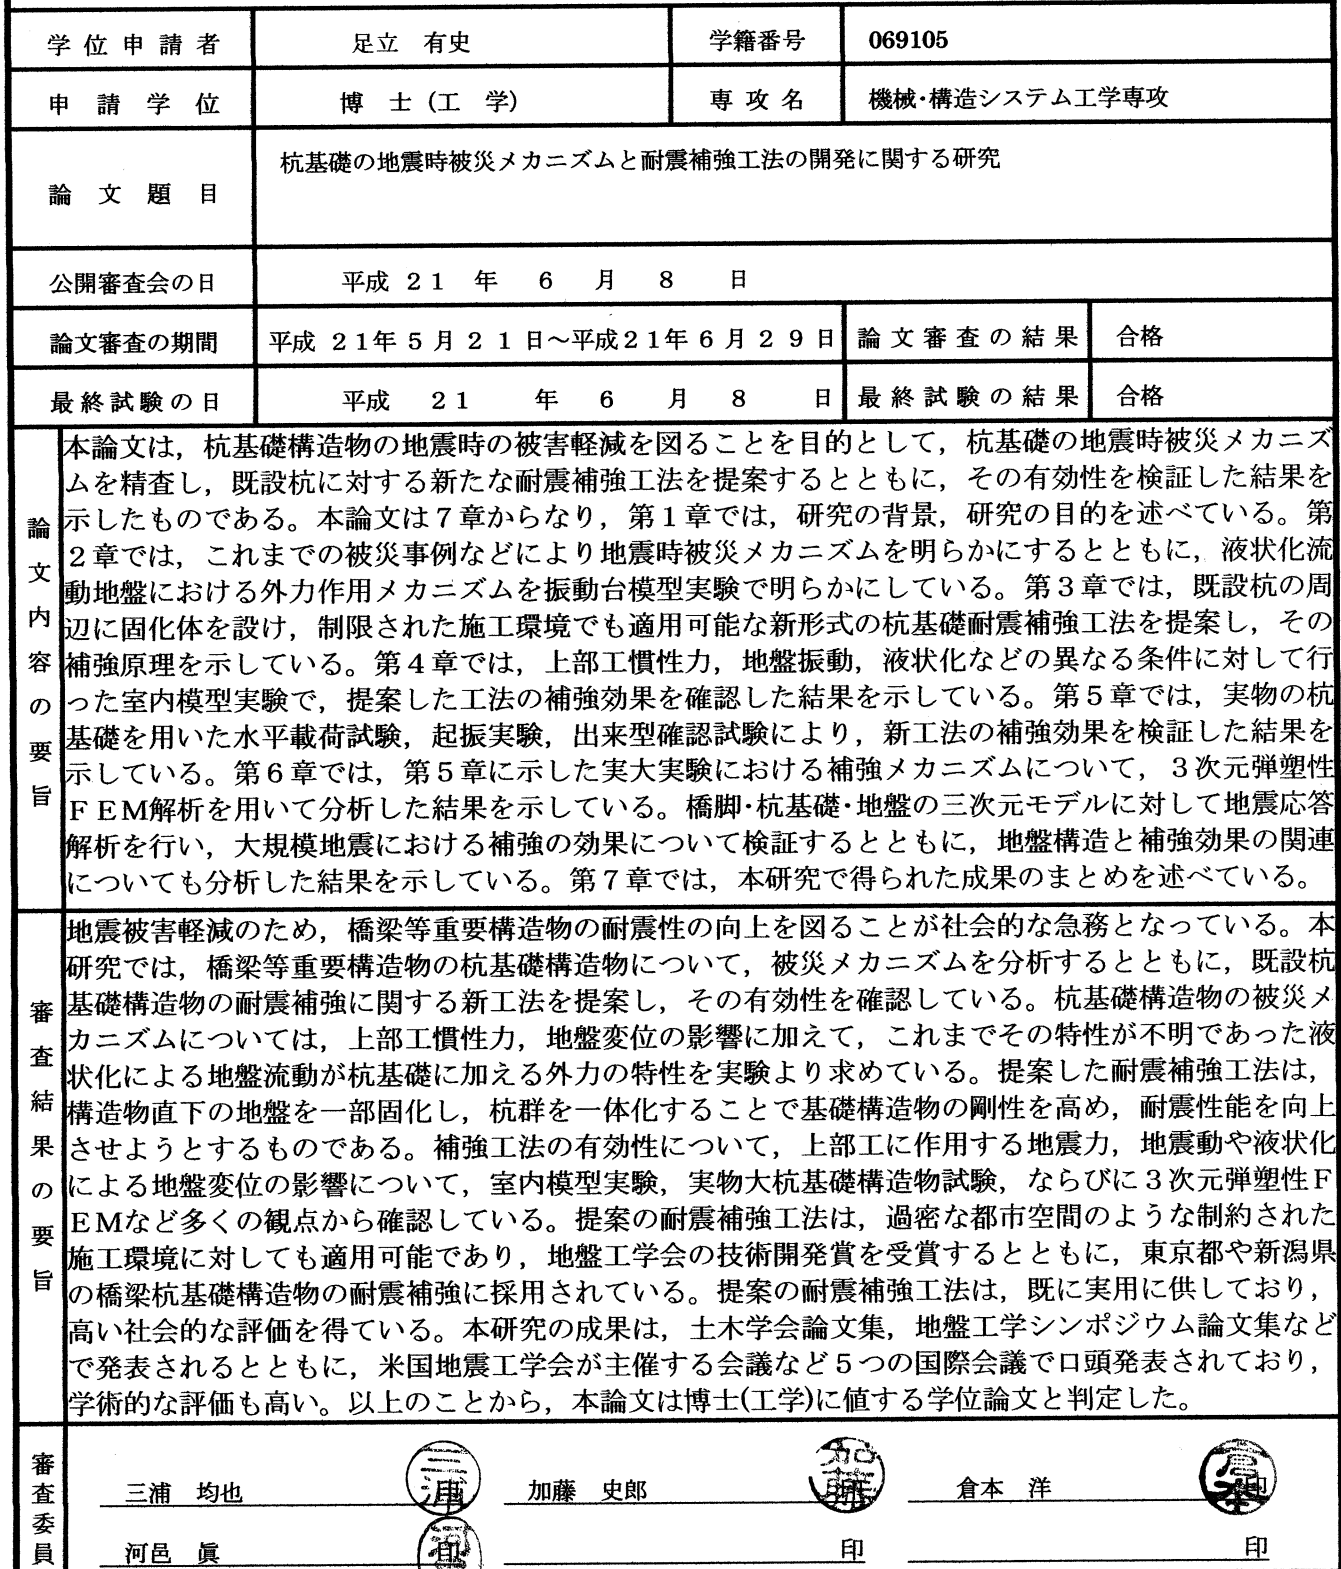 学位申請者 足立 有史 学籍番号 069105
申請学位 博士(工学) 専攻名 機械・構造システム工学専攻
論文題目 杭基礎の地震時被災メカニズムと耐震補強工法の開発に関する研究
公開審査会の日 平成 21 年 6 月 8 日
論文審査の期間 平成 21年 5 月 21 日～平成21年 6 月 29 日 論文審査の結果 合格
最終試験の日 平成 21 年 6 月 8 日 最終試験の結果 合格
論文内容の要旨
本論文は，杭基礎構造物の地震時の被害軽減を図ることを目的として，杭基礎の地震時被災メカニズ
ムを精査し，既設杭に対する新たな耐震補強工法を提案するとともに，その有効性を検証した結果を
示したものである。本論文は７章からなり，第１章では，研究の背景，研究の目的を述べている。第
２章では，これまでの被災事例などにより地震時被災メカニズムを明らかにするとともに，液状化流
動地盤における外力作用メカニズムを振動台模型実験で明らかにしている。第３章では，既設杭の周
辺に固化体を設け，制限された施工環境でも適用可能な新形式の杭基礎耐震補強工法を提案し，その
補強原理を示している。第４章では，上部工慣性力，地盤振動，液状化などの異なる条件に対して行
った室内模型実験で，提案した工法の補強効果を確認した結果を示している。第５章では，実物の杭
基礎を用いた水平載荷試験，起振実験，出来型確認試験により，新工法の補強効果を検証した結果を
示している。第６章では，第５章に示した実大実験における補強メカニズムについて，３次元弾塑性
ＦＥＭ解析を用いて分析した結果を示している。橋脚・杭基礎・地盤の三次元モデルに対して地震応答
解析を行い，大規模地震における補強の効果について検証するとともに，地盤構造と補強効果の関連
についても分析した結果を示している。第７章では，本研究で得られた成果のまとめを述べている。
審査結果の要旨
地震被害軽減のため，橋梁等重要構造物の耐震性の向上を図ることが社会的な急務となっている。本
研究では，橋梁等重要構造物の杭基礎構造物について，被災メカニズムを分析するとともに，既設杭
基礎構造物の耐震補強に関する新工法を提案し，その有効性を確認している。杭基礎構造物の被災メ
カニズムについては，上部工慣性力，地盤変位の影響に加えて，これまでその特性が不明であった液
状化による地盤流動が杭基礎に加える外力の特性を実験より求めている。提案した耐震補強工法は，
構造物直下の地盤を一部固化し，杭群を一体化することで基礎構造物の剛性を高め，耐震性能を向上
させようとするものである。補強工法の有効性について，上部工に作用する地震力，地震動や液状化
による地盤変位の影響について，室内模型実験，実物大杭基礎構造物試験，ならびに３次元弾塑性Ｆ
ＥＭなど多くの観点から確認している。提案の耐震補強工法は，過密な都市空間のような制約された
施工環境に対しても適用可能であり，地盤工学会の技術開発賞を受賞するとともに，東京都や新潟県
の橋梁杭基礎構造物の耐震補強に採用されている。提案の耐震補強工法は，既に実用に供しており，
高い社会的な評価を得ている。本研究の成果は，土木学会論文集，地盤工学シンポジウム論文集など
で発表されるとともに，米国地震工学会が主催する会議など５つの国際会議で口頭発表されており，
学術的な評価も高い。以上のことから，本論文は博士(工学)に値する学位論文と判定した。
審査委員
三浦 均也 印 三浦 加藤 史郎 印 加藤 倉本 洋 印 倉本
河邑 眞 印 印 印